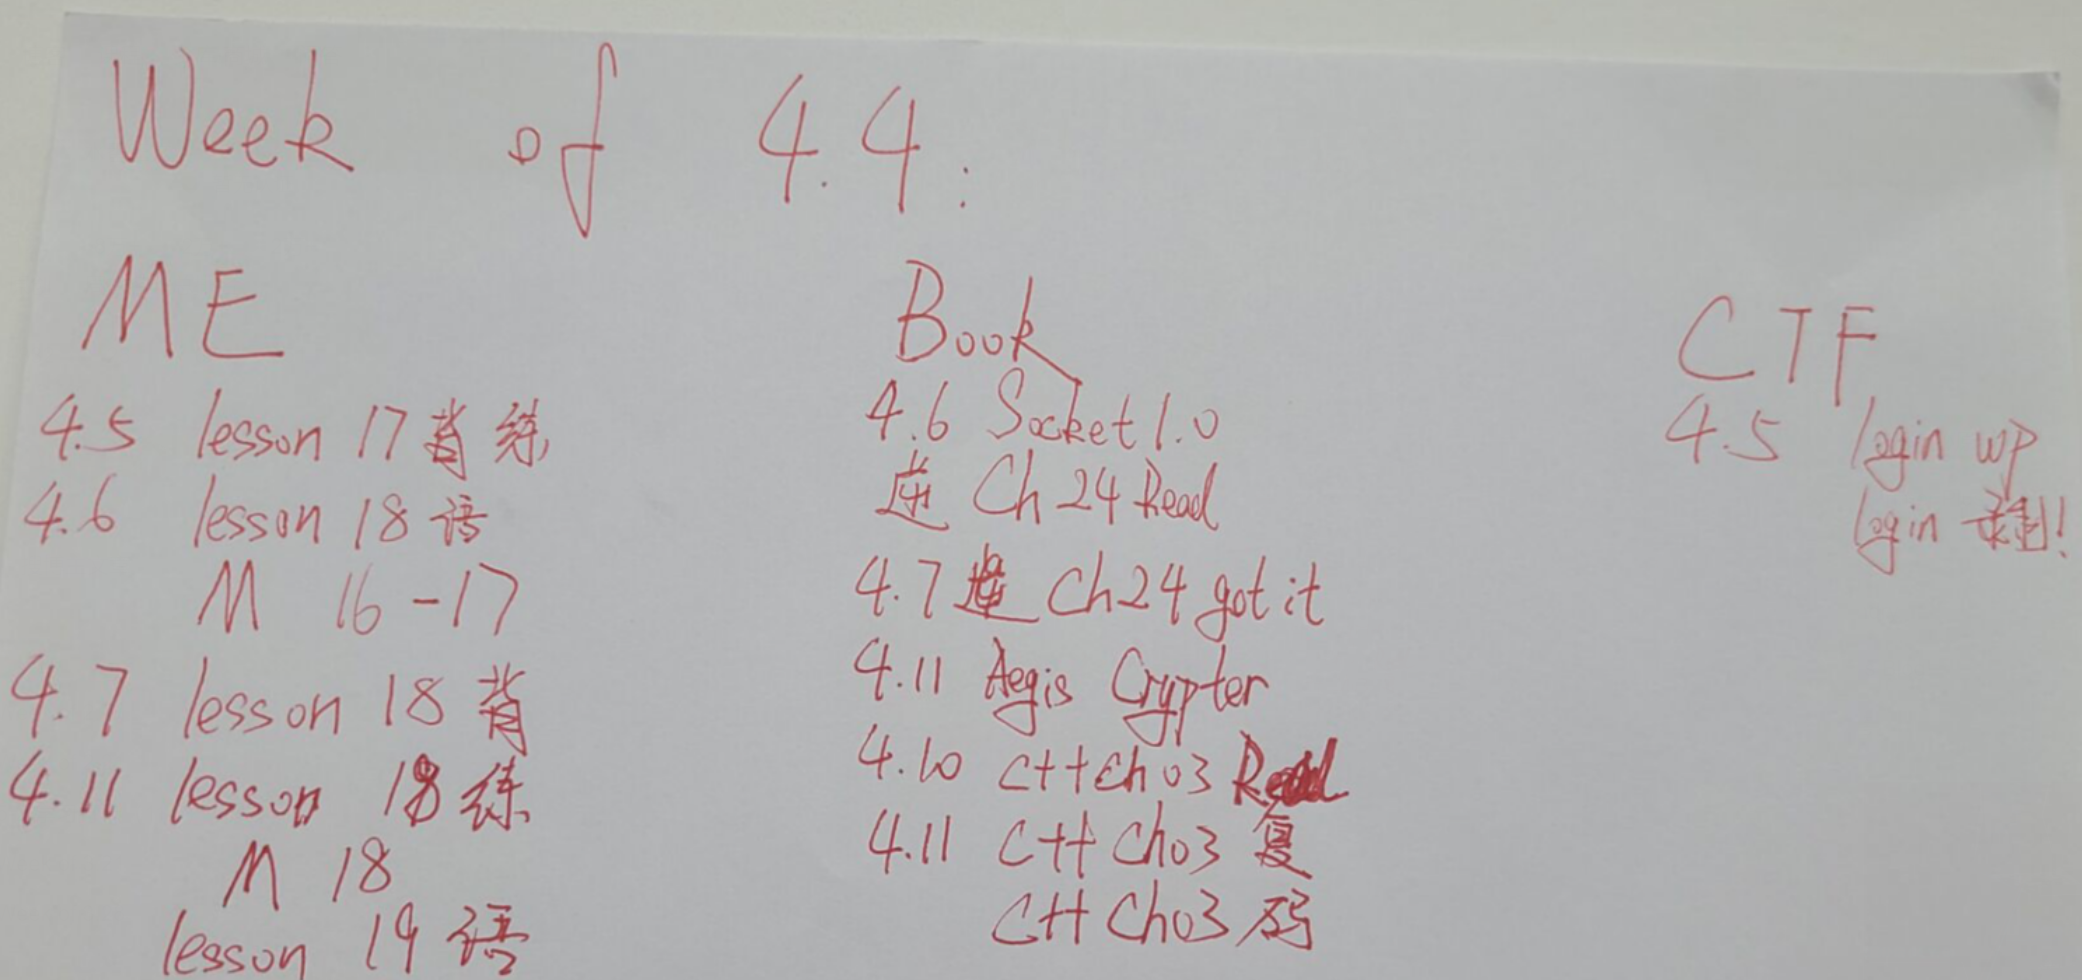 Week of 4.4:
ME
4.5 lesson 17 背 练
4.6 lesson 18 语
M 16-17
4.7 lesson 18 背
4.11 lesson 18 练
M 18
lesson 19 语
Book
4.6 Socket 1.0
逆 Ch 24 Read
4.7 逆 Ch24 got it
4.11 Aegis Crypter
4.10 C++ Ch03 Read
4.11 C++ Ch03 复
C++ Ch03 码
CTF
4.5 login wp
login 录制!